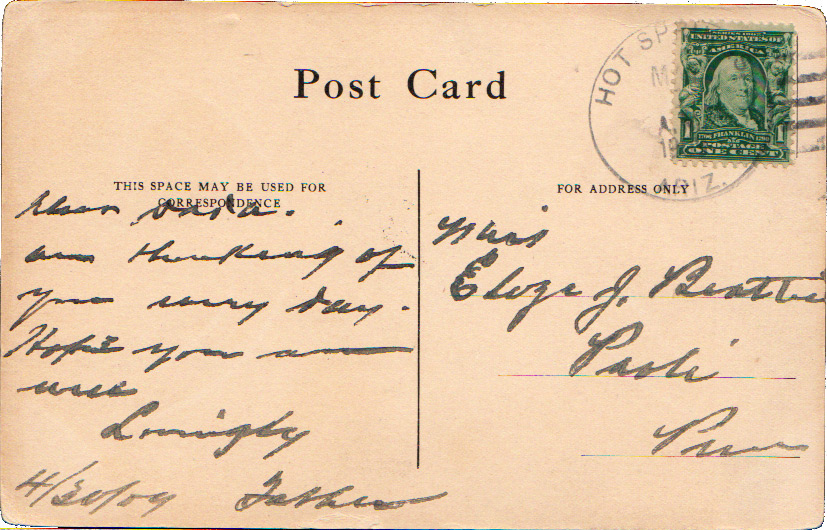 Post Card
HOT SP
ARIZ.
SERIES 1902
UNITED STATES OF
AMERICA
1706 FRANKLIN 1790
1 1
POSTAGE
ONE CENT
THIS SPACE MAY BE USED FOR
CORRESPONDENCE
Dear
am thinking of
you every day.
Hope you are
well
Lovingly
4/30/09 Father
FOR ADDRESS ONLY
Miss
J. Beattie
Paoli
Penn